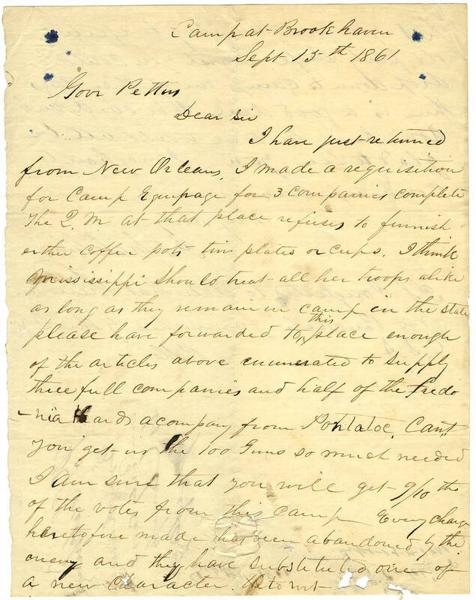 Camp at Brookhaven
Sept 15th 1861
Govr Pettus
Dear Sir
I have just returned
from New Orleans. I made a requisition
for Camp Equipage for 3 Companies complete
The Q. M at that place refuses to furnish
either coffee pots tin plates or cups. I think
Mississippi should treat all her troops alike
as long as they remain in camp in the State
please have forwarded to this place enough
of the articles above enumerated to supply
three full companies and half of the Fredo
-nia Hards a company from Pontatoc. Cant
you get us the 100 Guns so much needed
I am sure that you will get 9/10 ths
of the votes from this camp Every charge
heretofore made has been abandoned by the
enemy and they have substituted one of
a new character.